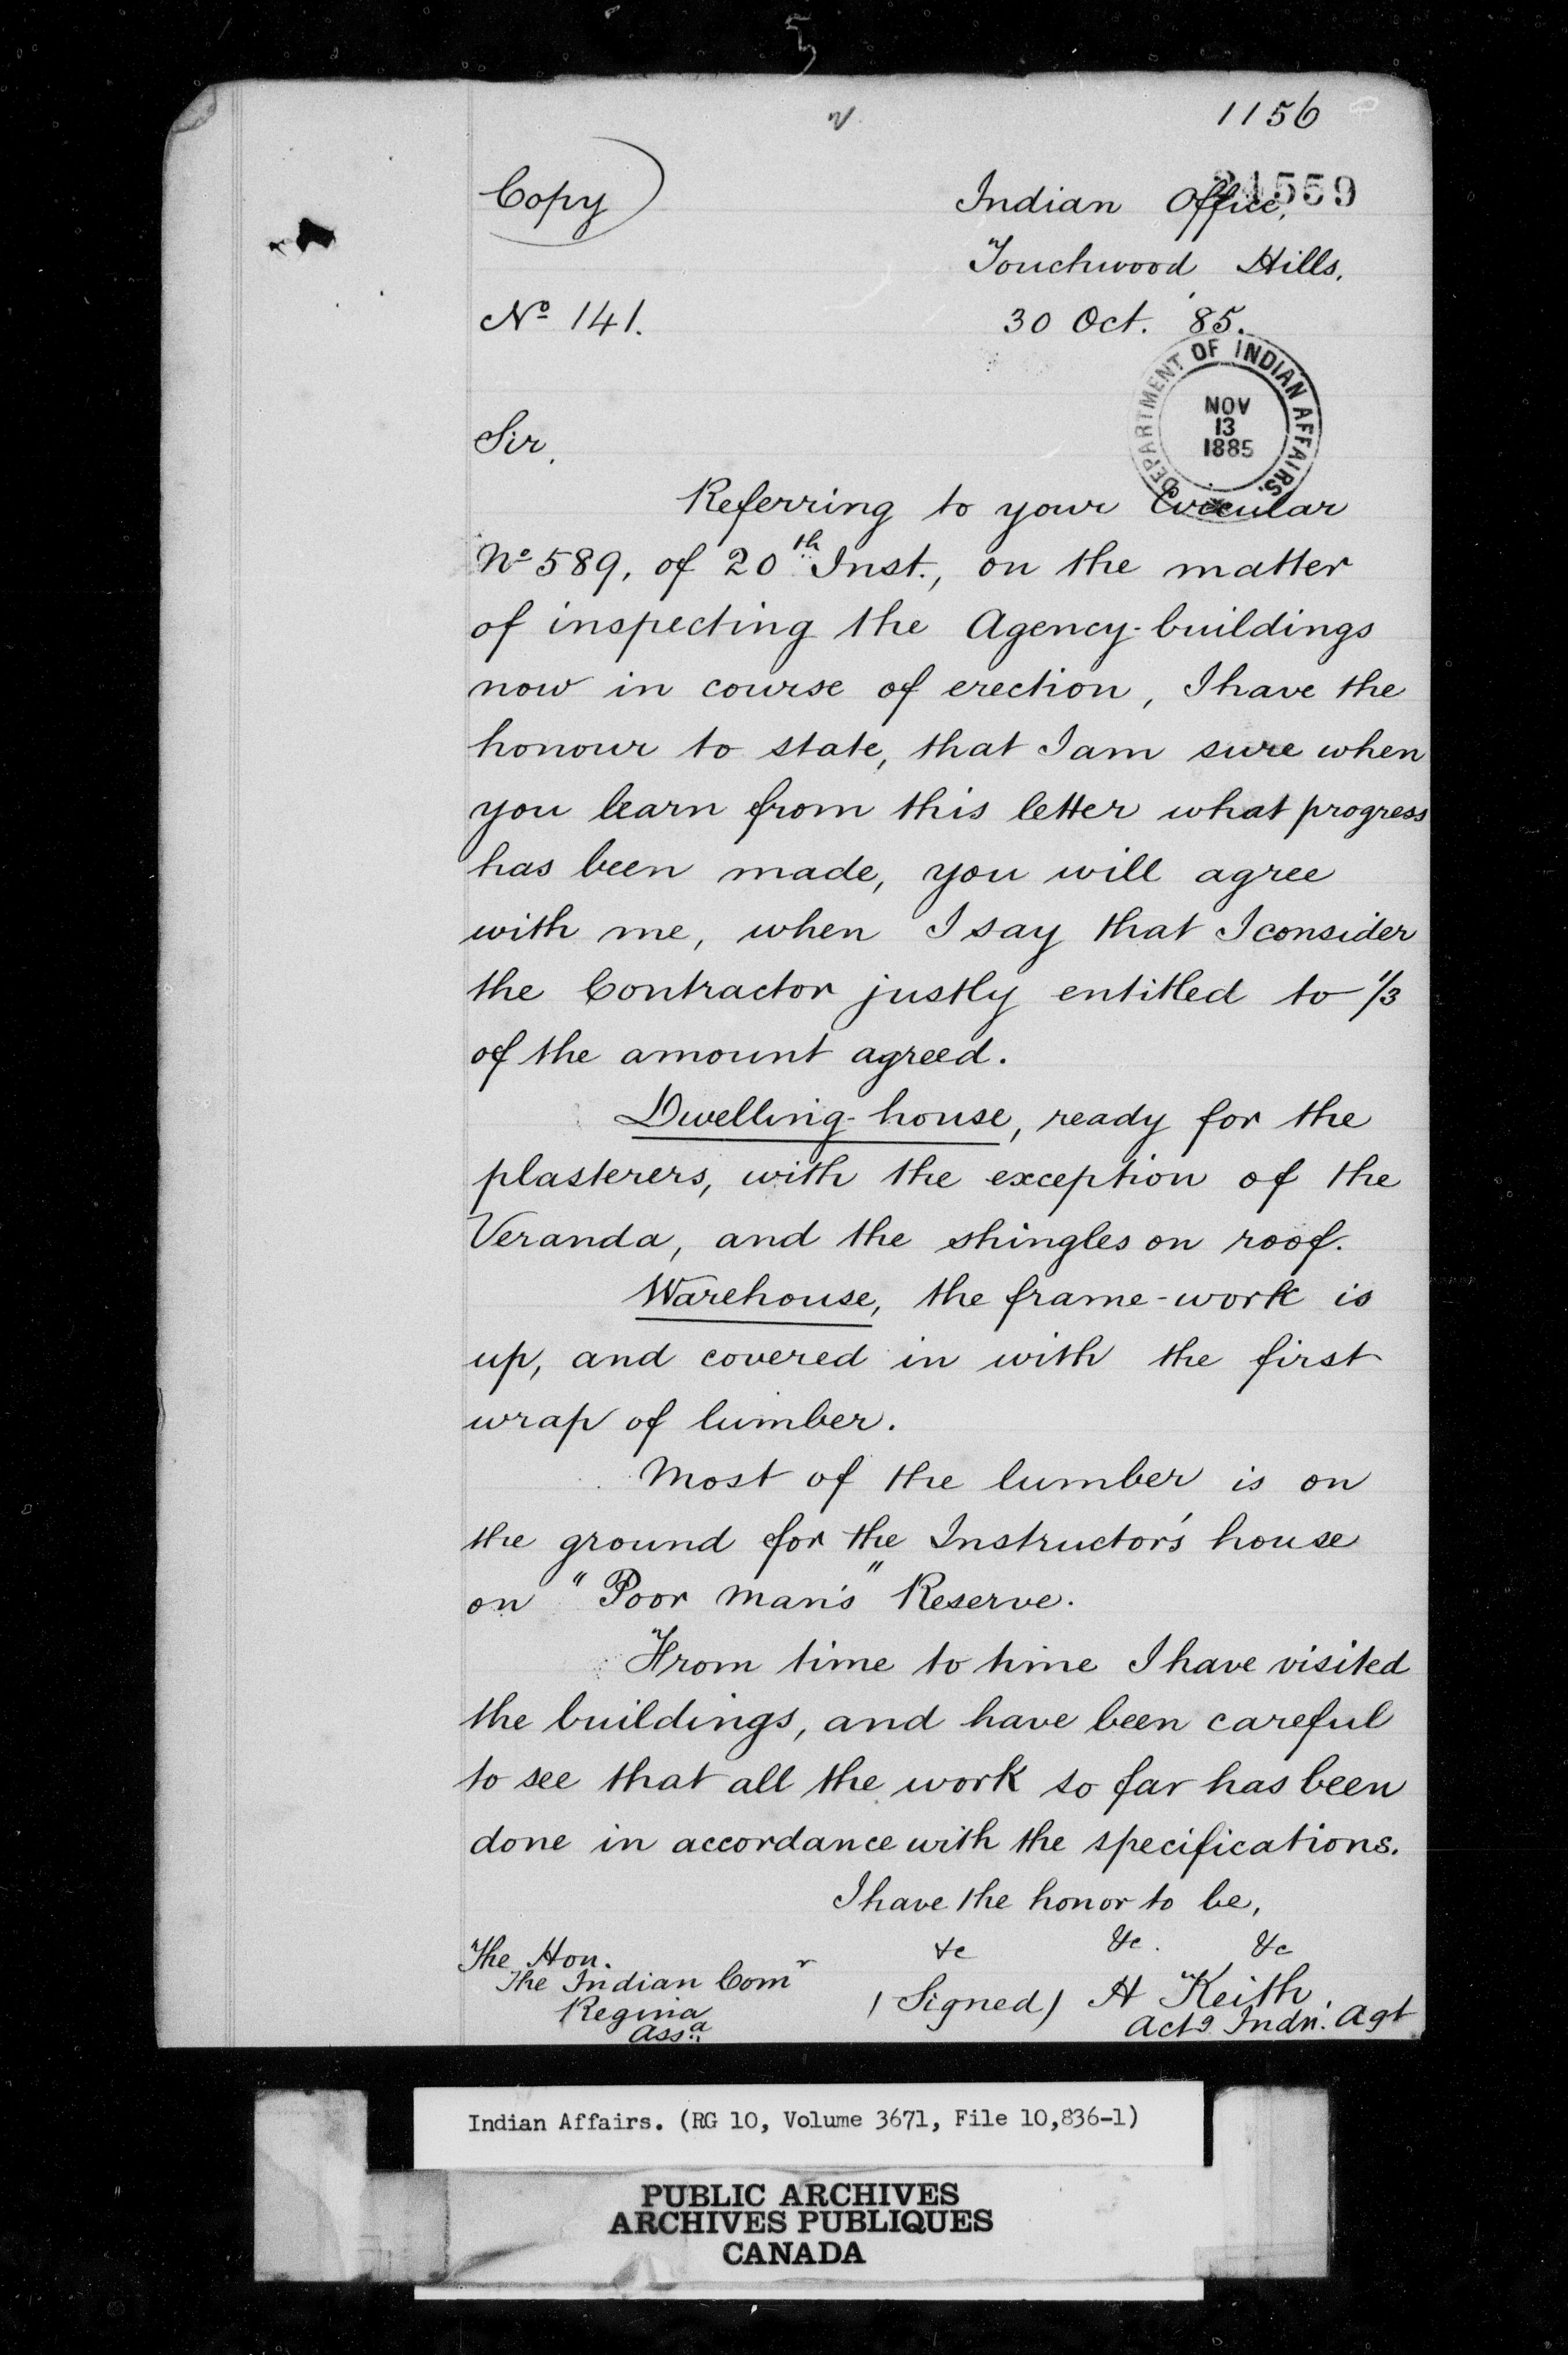 1156
Copy
Indian Office,
21559
Touchwood Hills.
No 141.
30 Oct. '85.
DEPARTMENT OF INDIAN AFFAIRS.
NOV
13
1885
Sir,
Referring to your Circular
No 589, of 20th Inst., on the matter
of inspecting the Agency-buildings
now in course of erection, I have the
honour to state, that I am sure when
you learn from this letter what progress
has been made, you will agree
with me, when I say that I consider
the Contractor justly entitled to 1/3
of the amount agreed.
Dwelling-house, ready for the
plasterers, with the exception of the
Veranda, and the shingles on roof.
Warehouse, the frame-work is
up, and covered in with the first
wrap of lumber.
Most of the lumber is on
the ground for the Instructor's house
on "Poor Man's" Reserve.
From time to time I have visited
the buildings, and have been careful
to see that all the work so far has been
done in accordance with the specifications.
I have the honor to be,
&c &c. &c
(Signed) H Keith,
Actg Indn. Agt
The Hon.
The Indian Comr
Regina
Assa
Indian Affairs. (RG 10, Volume 3671, File 10,836-1)
PUBLIC ARCHIVES
ARCHIVES PUBLIQUES
CANADA